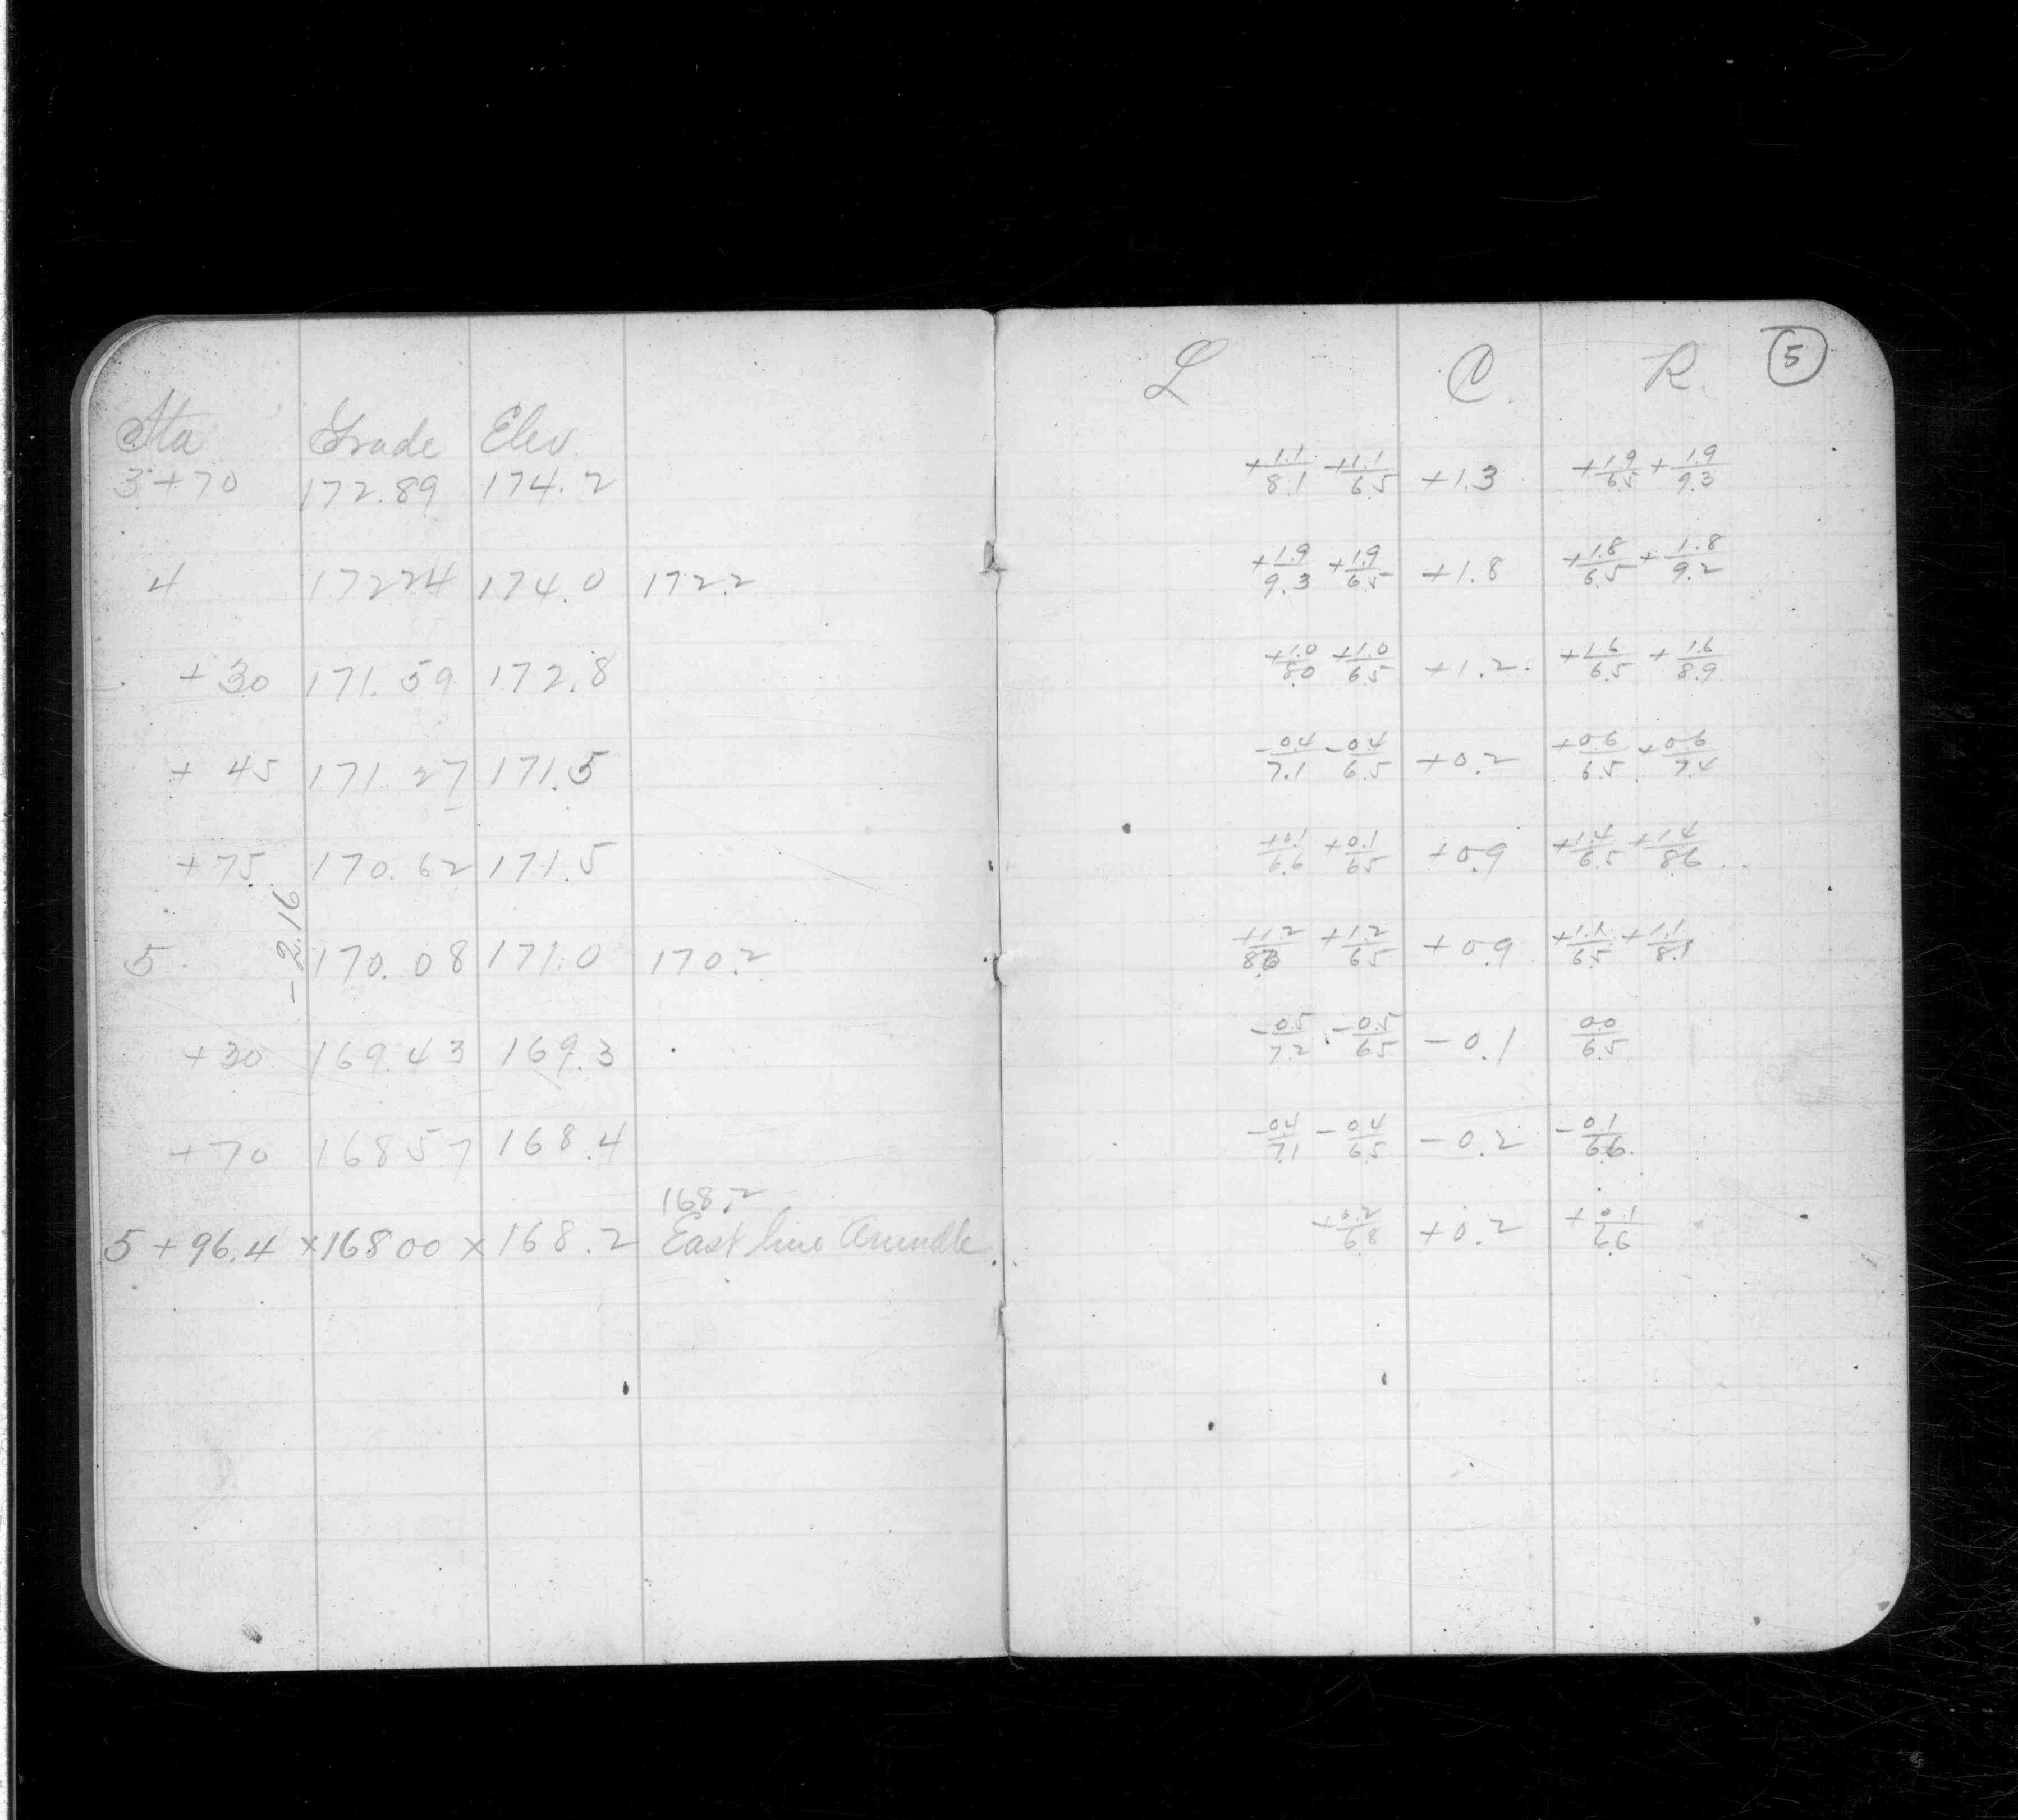 Sta Grade Elev.
3+70 172.89 174.2
4 172.24 174.0 172.2
+30 171.59 172.8
+45 171.27 171.5
+75 170.62 171.5
-2.16
5 170.08 171.0 170.2
+30 169.43 169.3
+70 168.57 168.4
168.2
5+96.4 x168.00 x168.2 East line Arundle
5
L C. R.
+1.1/8.1 +1.1/6.5 +1.3 +1.9/6.5 +1.9/9.3
+1.9/9.3 +1.9/6.5 +1.8 +1.8/6.5 +1.8/9.2
+1.0/8.0 +1.0/6.5 +1.2 +1.6/6.5 +1.6/8.9
-0.4/7.1 -0.4/6.5 +0.2 +0.6/6.5 +0.6/7.4
+0.1/6.6 +0.1/6.5 +0.9 +1.4/6.5 +1.4/8.6
+1.2/8.3 +1.2/6.5 +0.9 +1.1/6.5 +1.1/8.1
-0.5/7.2 -0.5/6.5 -0.1 0.0/6.5
-0.4/7.1 -0.4/6.5 -0.2 -0.1/6.6
+0.2/6.8 +0.2 +0.1/6.6